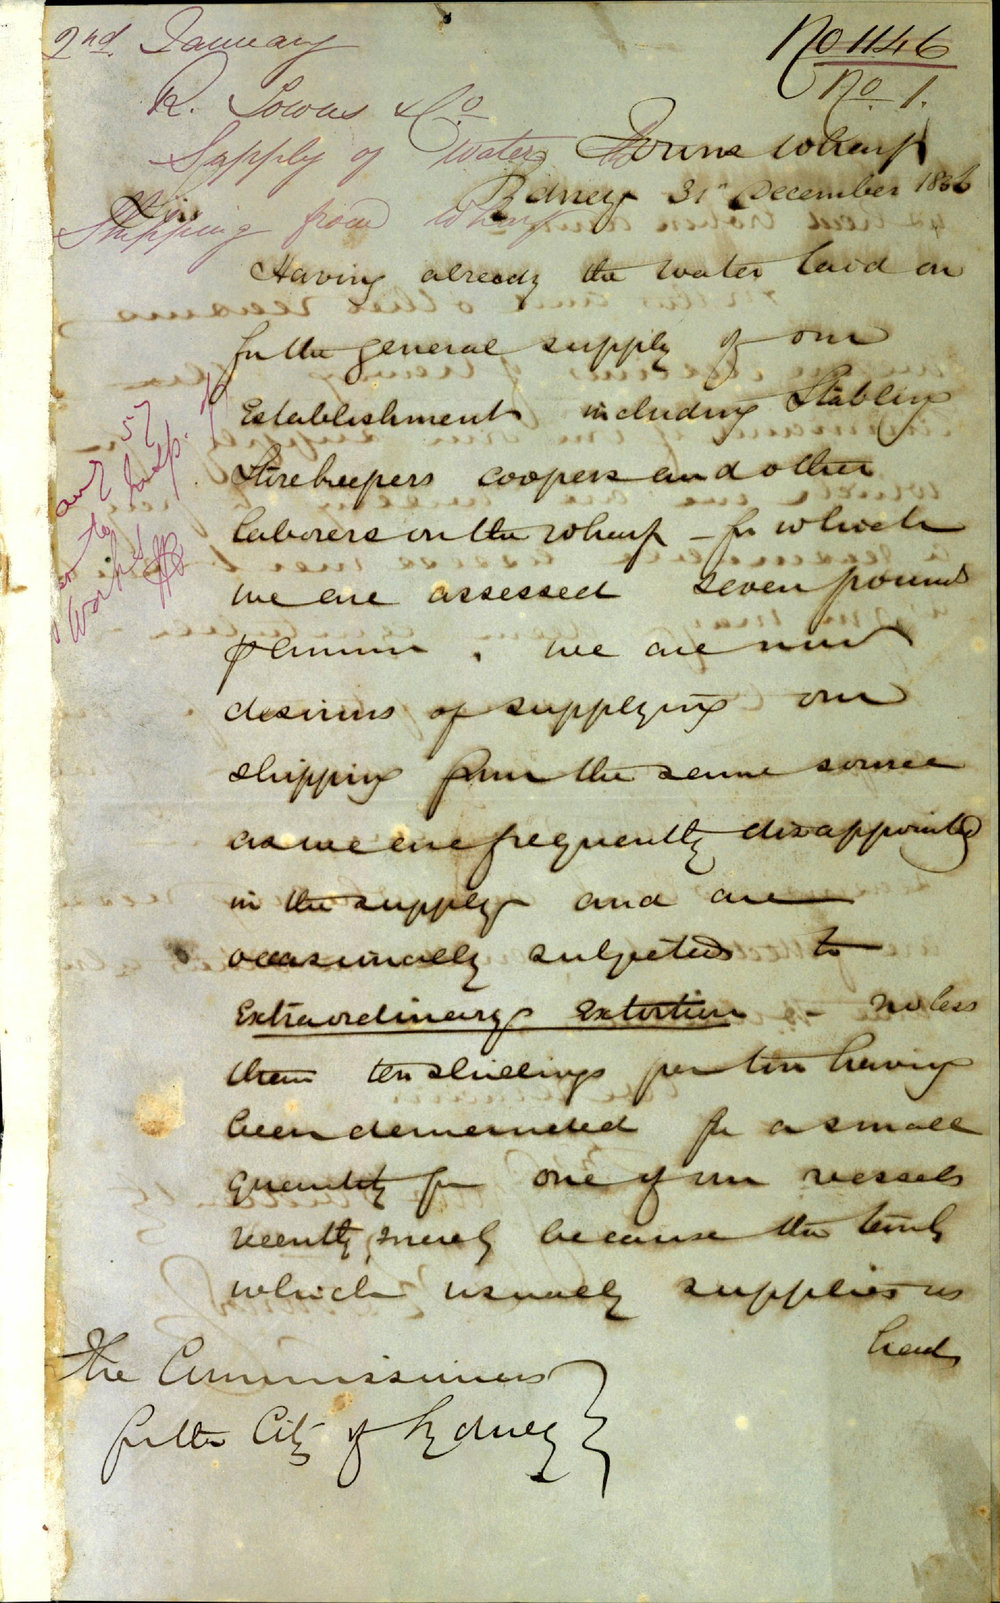 2nd January
No 1146
No 1.
R. Towns & Co
Supply of Water to
Shipping from Wharf
Towns Wharf
Sydney 31st December 1856
Sirs
Having already the water laid on
for the general supply of our
Establishment including Stabling
Storekeepers coopers and other
laborers on the Wharf - for which
we are assessed seven pounds
p annum. we are now
desirous of supplying our
shipping from the same source
as we are frequently disappointed
in the supply and are
occasionally subjected to
Extraordinary Extortion - no less
than ten shillings per ton having
been demanded for a small
quantity for one of our vessels
recently, merely because the tank
which usually supplies us
had
The Commissioners
for the City of Sydney